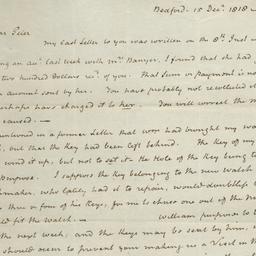 Bedford. 15 Decr. 1818
ar Peter
My last Letter to you was written on the 8th Inst
ing an acct. last week with Mr. Banyer, I found that she had
two hundred Dollars recd. of you. That Sum or payment is not
amount sent by her. You have probably not recollected
perhaps have charged it to her. You will correct the
caused.—
mentioned in a former Letter that you had brought my wa
, but that the Key had been left behind. The Key of my
wind it up, but not to set it—the Hole of the Key being to
Purpose. I suppose the Key belonging to the new Watch
maker, who lately had it to repair, would doubtless
three or four of his Keys, for me to chuse one out of the n
ld fit the Watch.— William purposes to
the next week, and the Keys may be sent by him,
should occur to prevent your making us a Visit in